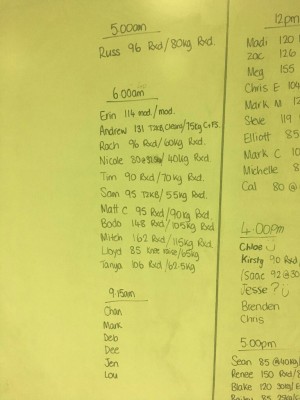 5:00am
Russ 96 Rxd/80kg Rxd.
6:00am
Erin 114 mod./mod.
Andrew 131 T2KB,Cleans/75kg C+FS.
Rach 96 Rxd/60kg Rxd.
Nicole 80 / 40kg Rxd.
Tim 90 Rxd/70kg Rxd.
Sam 95 T2KB/55kg Rxd.
Matt C 95 Rxd/90kg Rxd.
Bodo 148 Rxd/105kg Rxd.
Mitch 162 Rxd/115kg Rxd.
Lloyd 85 knee raise/65kg
Tanya 106 Rxd/62.5kg
9:15am
Chan
Mark
Deb
Dee
Jen
Lou
12pm
Madi 120
Zac 126
Meg 155
Chris E 104
Mark M 12
Steve 119
Elliott 85
Mark C 10
Michelle 8
Cal 80 @
4:00pm
Chloe
Kirsty 90 Rxd/
Isaac 92 @30
Jesse ?
Brenden
Chris
5:00pm
Sean 85 @40kg/
Renee 150 Rxd/8
Blake 120 30kg/
85 25kg/